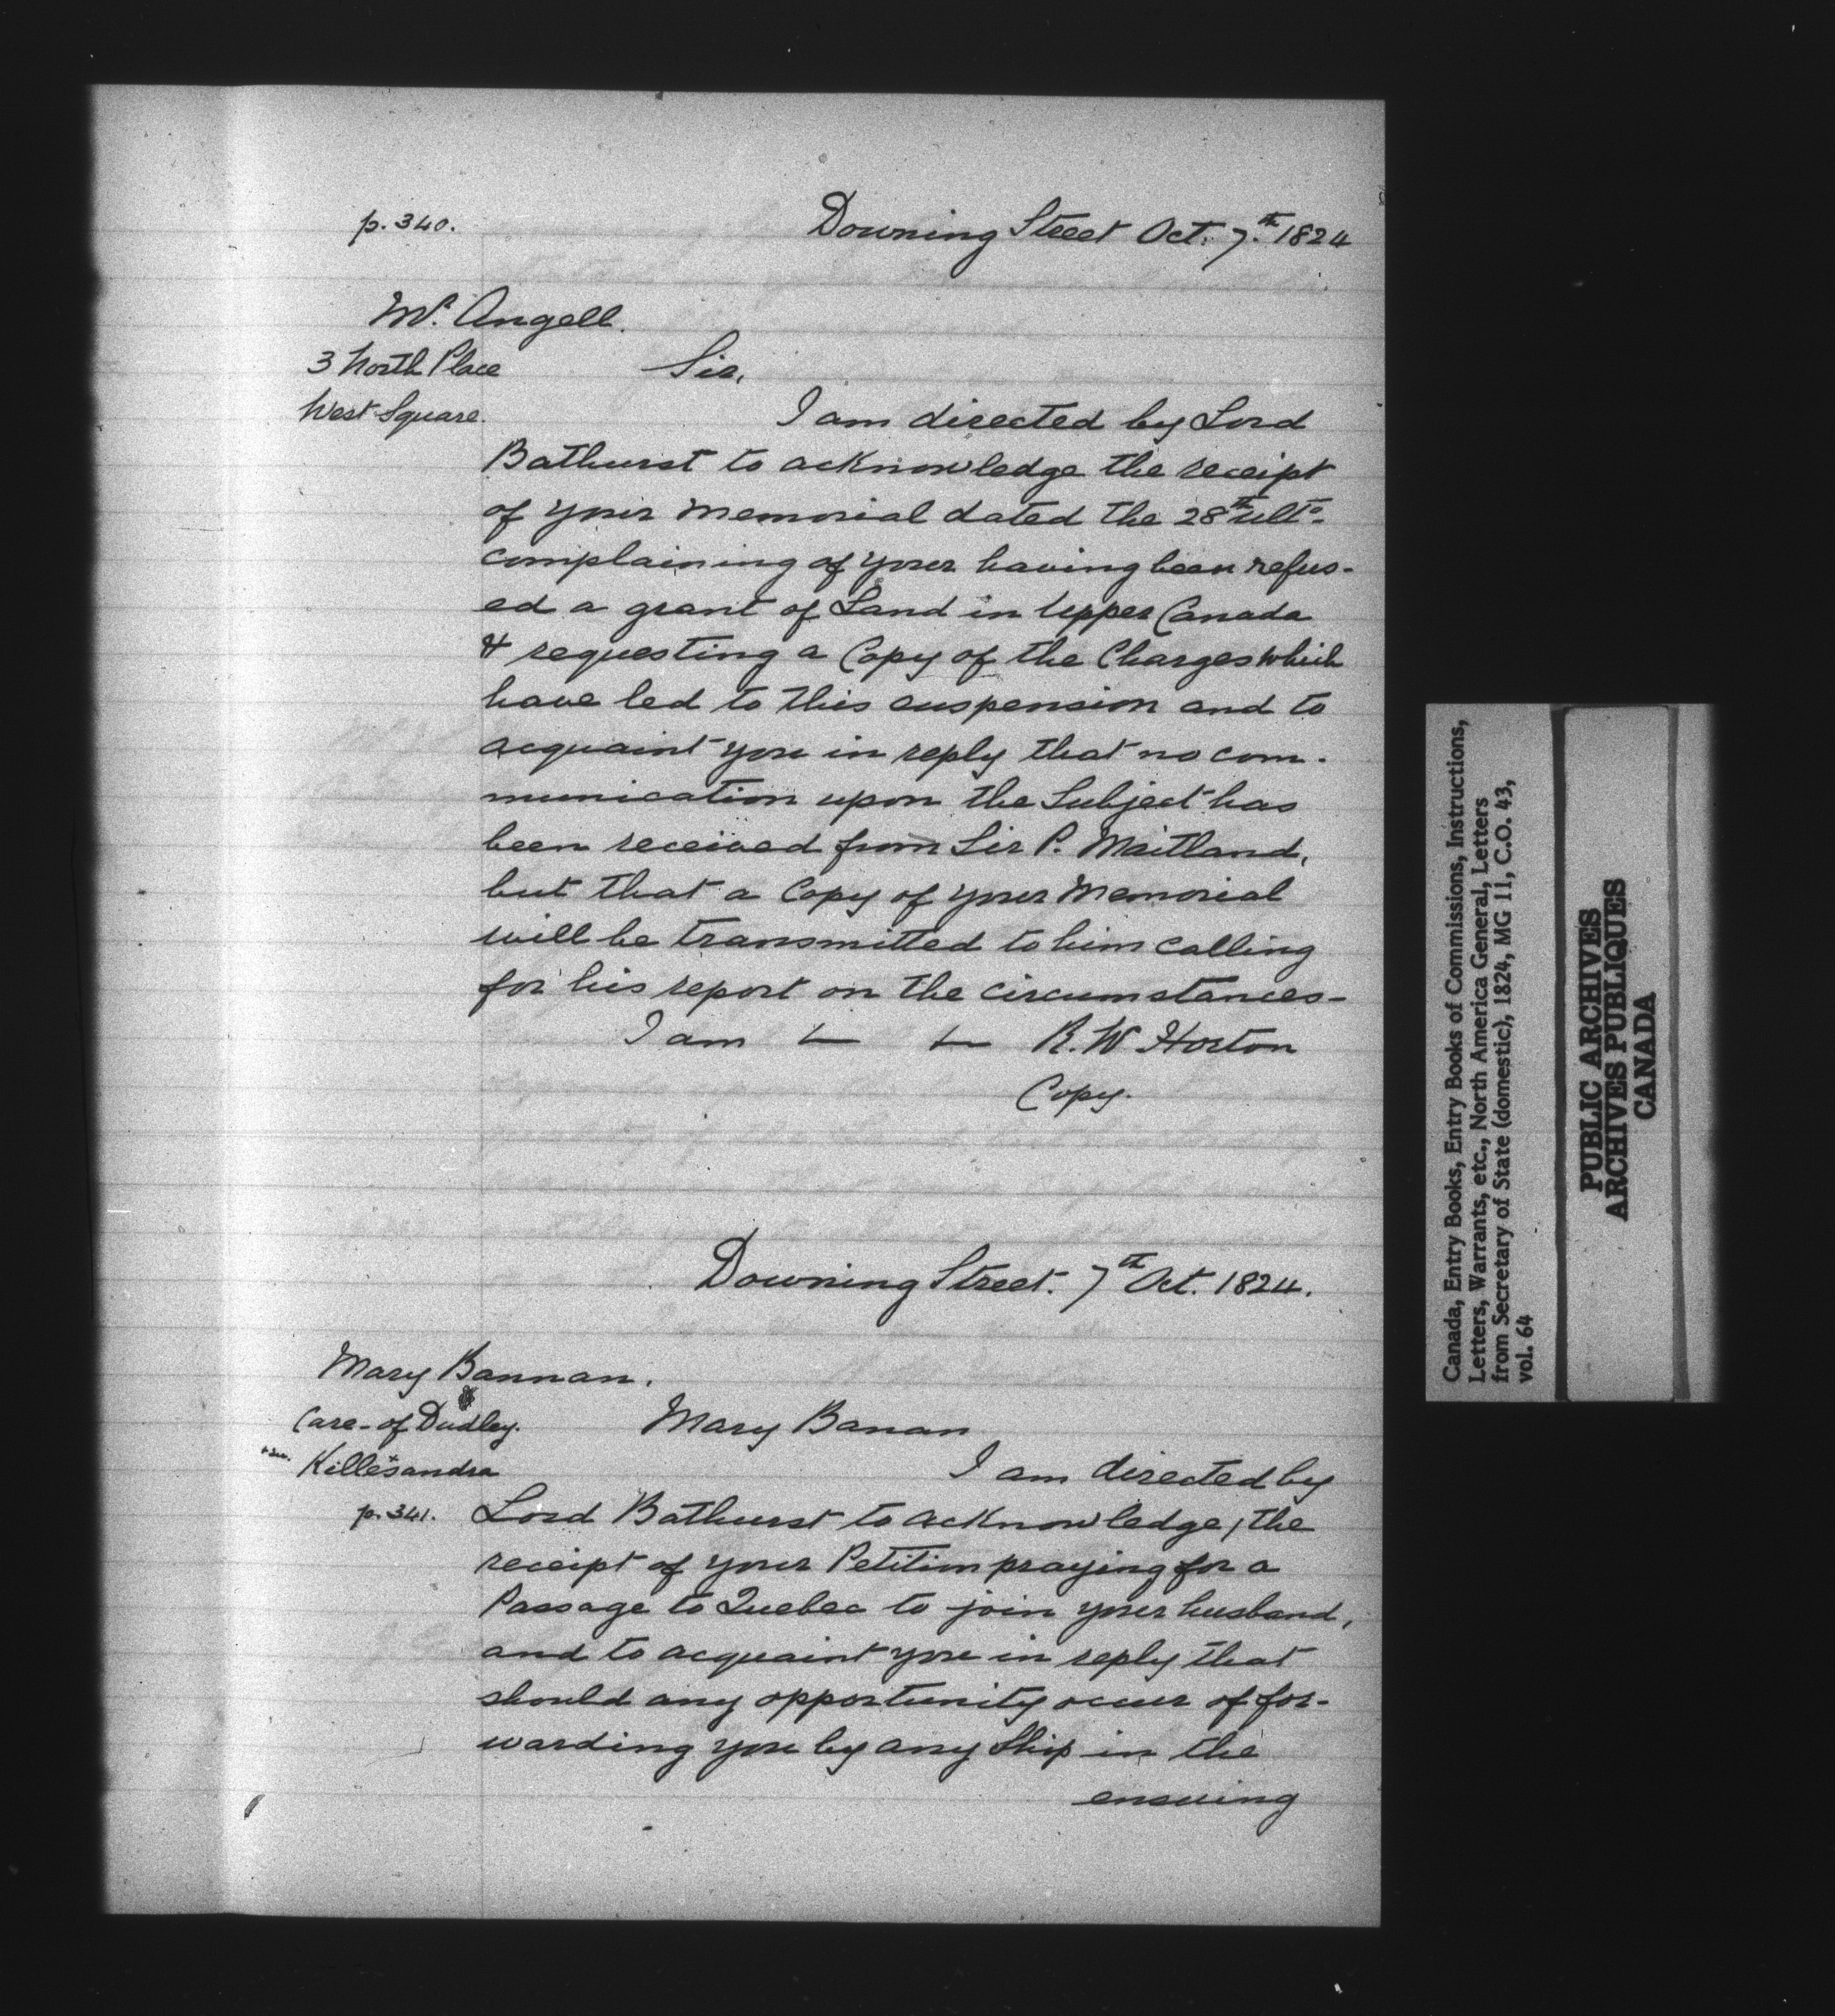 p. 340.
Downing Street Oct. 7th 1824
Mr. Angell.
3 North Place
West Square.
Sir,
I am directed by Lord
Bathurst to acknowledge the receipt
of your Memorial dated the 28th ulto.
complaining of your having been refus-
ed a grant of Land in Upper Canada
& requesting a Copy of the Charges which
have led to this suspension and to
acquaint you in reply that no com-
munication upon the Subject has
been received from Sir P. Maitland,
but that a Copy of your Memorial
will be transmitted to him calling
for his report on the circumstances-
I am R. W Horton
Copy.
Downing Street. 7th Oct. 1824.
Mary Bannan.
Care-of Dudley.
Killesandra
Mary Banan
I am directed by
p. 341.
Lord Bathurst to acknowledge, the
receipt of your Petition praying for a
Passage to Quebec to join your husband,
and to acquaint you in reply that
should any opportunity occur of for-
warding you by any Ship in the
ensuing
Canada, Entry Books, Entry Books of Commissions, Instructions,
Letters, Warrants, etc., North America General, Letters
from Secretary of State (domestic), 1824, MG 11, C.O. 43,
vol. 64
PUBLIC ARCHIVES
ARCHIVES PUBLIQUES
CANADA